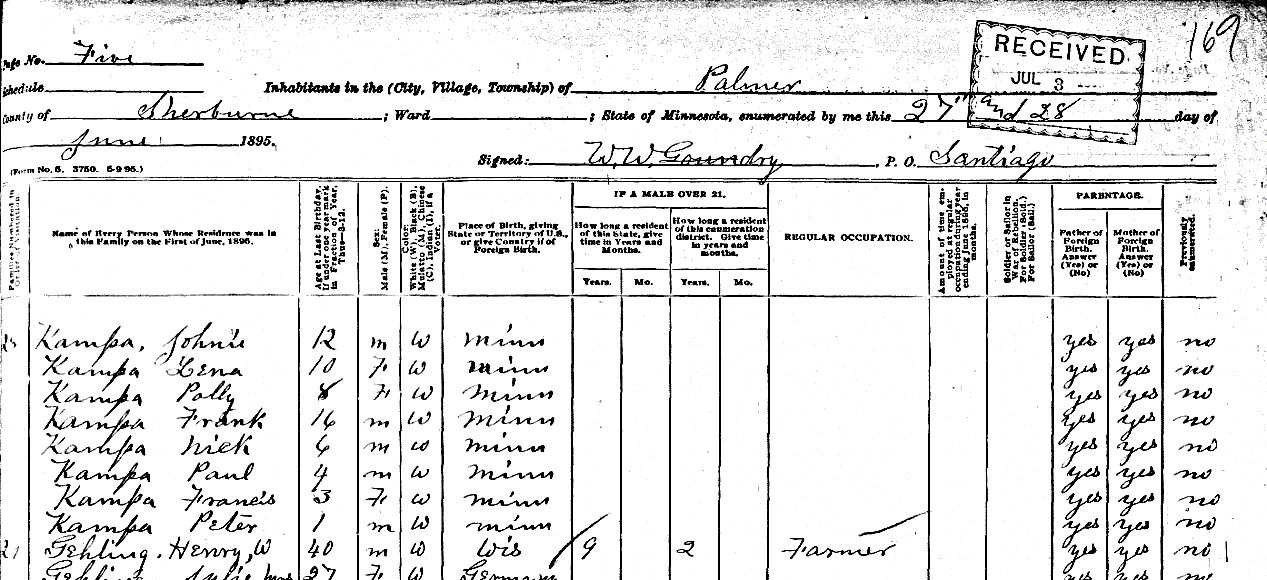 169
RECEIVED
JUL 3
Page No. Five
Schedule Inhabitants in the (City, Village, Township) of Palmer
County of Sherburne ; Ward ; State of Minnesota, enumerated by me this 27" and 28 day of
June 1895.
Signed: W. W. Goundry , P. O. Santiago
(Form No. 5. 3750. 5-9 95.)
Families Numbered in Order of Visitation
Name of Every Person Whose Residence was in this Family on the First of June, 1895.
Age at Last Birthday. If under one year mark in Fraction of Year. Thus—3-12.
Sex: Male (M), Female (F).
Color: White (W), Black (B), Mulatto (M), Chinese (C), Indian (I), if a Voter.
Place of Birth, giving State or Territory of U.S., or give Country if of Foreign Birth.
IF A MALE OVER 21.
How long a resident of this State, give time in Years and Months.
How long a resident of this enumeration district. Give time in years and months.
Years. Mo. Years. Mo.
REGULAR OCCUPATION.
Soldier or Sailor in War of Rebellion. For Soldier (Sold.) For Sailor (Sail.)
PARENTAGE.
Father of Foreign Birth. Answer (Yes) or (No)
Mother of Foreign Birth. Answer (Yes) or (No)
Previously enumerated.
Kampa, Johnie 12 m W Minn yes yes no
Kampa Lena 10 F W Minn yes yes no
Kampa Polly 8 F W Minn yes yes no
Kampa Frank 16 m W Minn yes yes no
Kampa Nick 6 m W Minn yes yes no
Kampa Paul 4 m W Minn yes yes no
Kampa Francis 3 F W Minn yes yes no
Kampa Peter 1 m W Minn yes yes no
Gehling, Henry, W 40 m W Wis 9 2 Farmer yes yes no
27 F W German